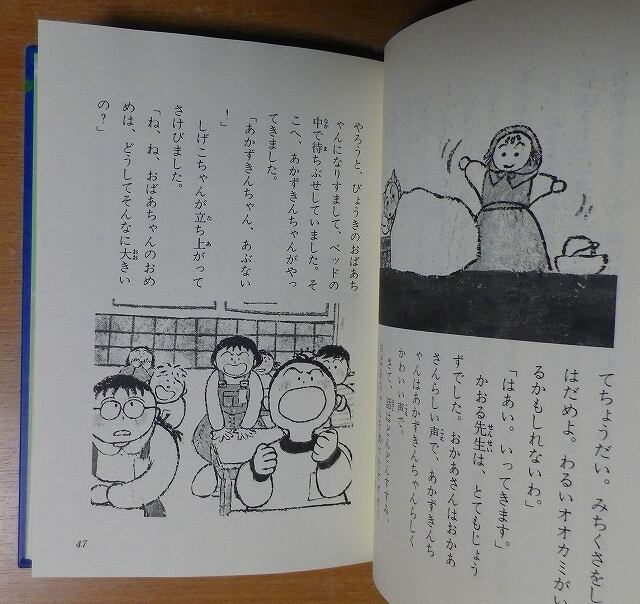 てちょうだい。みちくさをし
はだめよ。わるいオオカミがい
るかもしれないわ。」
「はあい。いってきます。」
かおる先生は、とてもじょう
ずでした。おかあさんはおかあ
さんらしい声で、あかずきんち
ゃんはあかずきんちゃんらしく
かわいい声で。
やろうと、びょうきのおばあち
ゃんになりすまして、ベッドの
中で待ちぶせしていました。そ
こへ、あかずきんちゃんがやっ
てきました。
「あかずきんちゃん、あぶない
！」
しげこちゃんが立ち上がって
さけびました。
「ね、ね、おばあちゃんのおめ
めは、どうしてそんなに大きい
の？」
47